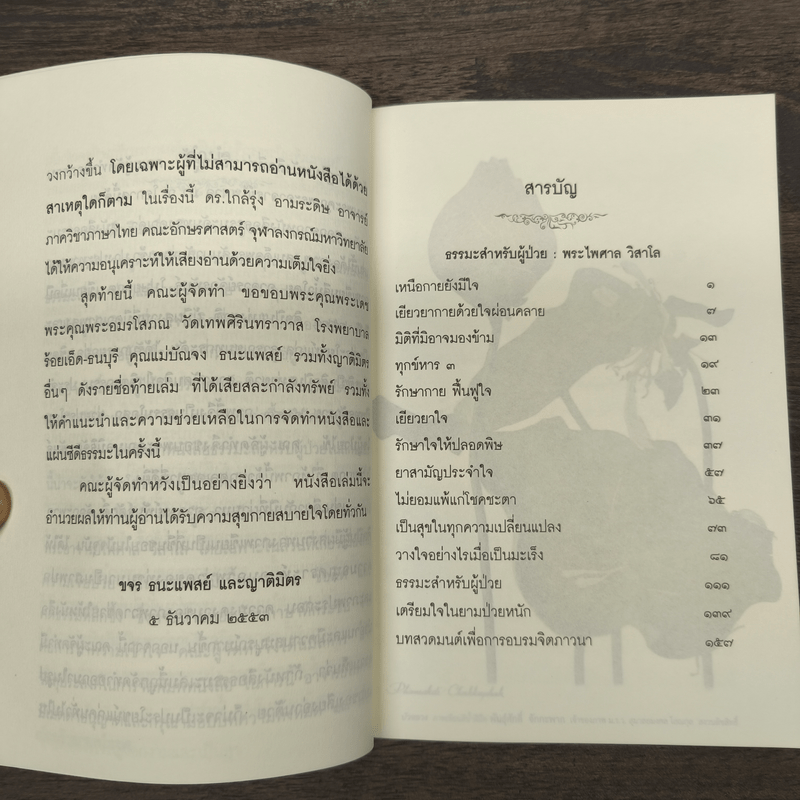 วงกว้างขึ้น โดยเฉพาะผู้ที่ไม่สามารถอ่านหนังสือได้ด้วย
สาเหตุใดก็ตาม ในเรื่องนี้ ดร.ใกล้รุ่ง อามระดิษ อาจารย์
ภาควิชาภาษาไทย คณะอักษรศาสตร์ จุฬาลงกรณ์มหาวิทยาลัย
ได้ให้ความอนุเคราะห์ให้เสียงอ่านด้วยความเต็มใจยิ่ง
สุดท้ายนี้ คณะผู้จัดทำ ขอขอบพระคุณพระเดช
พระคุณพระอมรโสภณ วัดเทพศิรินทราวาส โรงพยาบาล
ร้อยเอ็ด-ธนบุรี คุณแม่บัณจง ธนะแพสย์ รวมทั้งญาติมิตร
อื่นๆ ดังรายชื่อท้ายเล่ม ที่ได้เสียสละกำลังทรัพย์ รวมทั้ง
ให้คำแนะนำและความช่วยเหลือในการจัดทำหนังสือและ
แผ่นซีดีธรรมะในครั้งนี้
คณะผู้จัดทำหวังเป็นอย่างยิ่งว่า หนังสือเล่มนี้จะ
อำนวยผลให้ท่านผู้อ่านได้รับความสุขกายสบายใจโดยทั่วกัน
ขจร ธนะแพสย์ และญาติมิตร
๕ ธันวาคม ๒๕๕๓
สารบัญ
ธรรมะสำหรับผู้ป่วย : พระไพศาล วิสาโล
เหนือกายยังมีใจ ๑
เยียวยากายด้วยใจผ่อนคลาย ๗
มิติที่มิอาจมองข้าม ๑๓
ทุกข์หาร ๓ ๑๙
รักษากาย ฟื้นฟูใจ ๒๓
เยียวยาใจ ๓๑
รักษาใจให้ปลอดพิษ ๓๗
ยาสามัญประจำใจ ๕๗
ไม่ยอมแพ้แก่โชคชะตา ๖๕
เป็นสุขในทุกความเปลี่ยนแปลง ๗๓
วางใจอย่างไรเมื่อเป็นมะเร็ง ๘๑
ธรรมะสำหรับผู้ป่วย ๑๑๑
เตรียมใจในยามป่วยหนัก ๑๓๙
บทสวดมนต์เพื่อการอบรมจิตภาวนา ๑๕๗